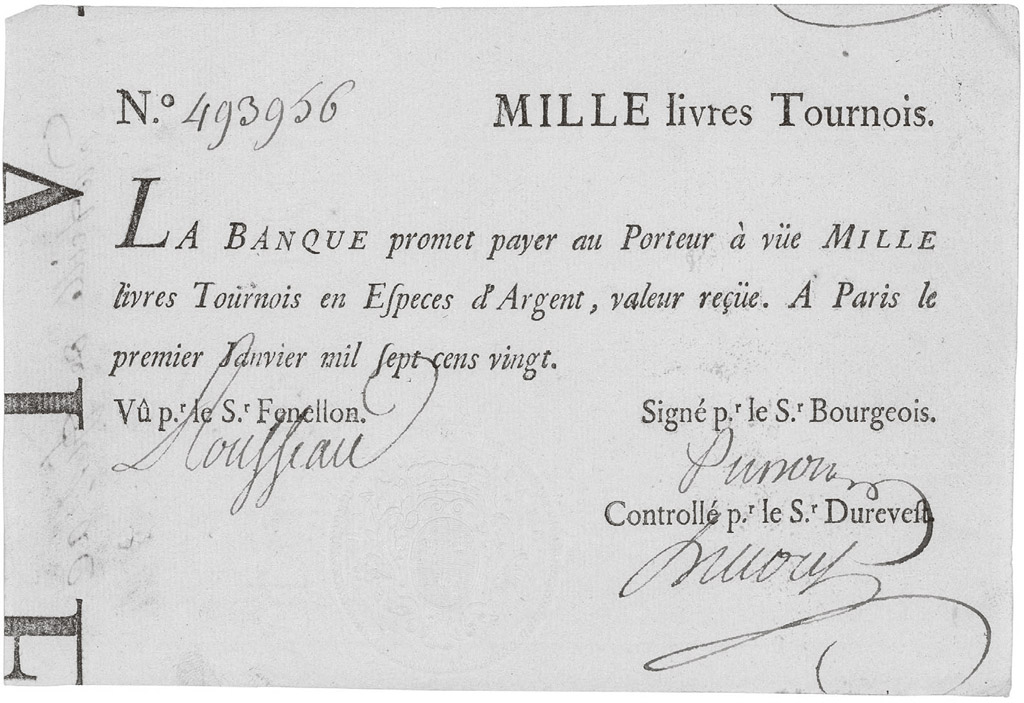 N.º 493956 MILLE livres Tournois.
LA BANQUE promet payer au Porteur à vüe MILLE
livres Tournois en Eſpeces d'Argent, valeur reçüe. A Paris le
premier Janvier mil ſept cens vingt.
Vû p.r le S.r Fenellon. Signé p.r le S.r Bourgeois.
Controllé p.r le S.r Dureveſt.